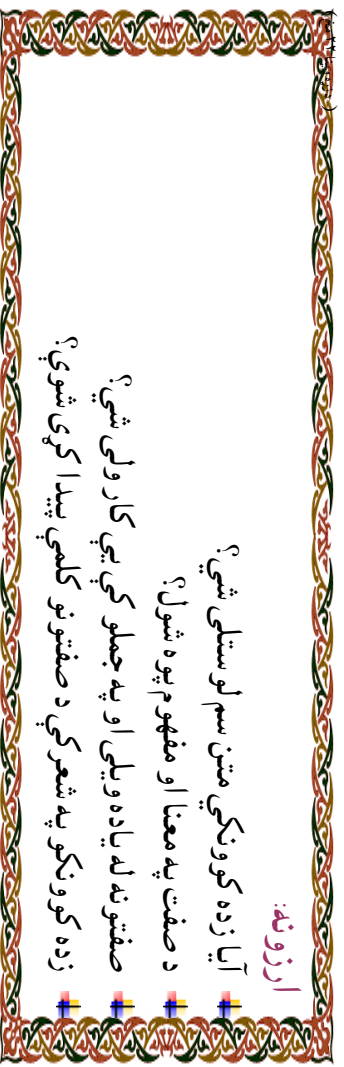 ارزونه:
آيا زده کوونکي متن سم لوستلی شي؟
د صفت په معنا او مفهوم پوه شول؟
صفتونه له ياده ويلی او په جملو کې يې کار ولی شي؟
زده کوونکو په شعر کې د صفتونو کلمې پيدا کړی شوې؟